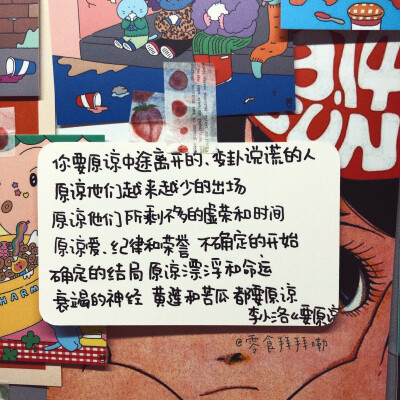 3.14
SUN
你要原谅中途离开的、变卦说谎的人
原谅他们越来越少的出场
原谅他们所剩不多的虚荣和时间
原谅爱、纪律和荣誉 不确定的开始
确定的结局 原谅漂浮和命运
衰竭的神经 黄莲和苦瓜 都要原谅
李小洛《要原谅
@零食拜拜嘞